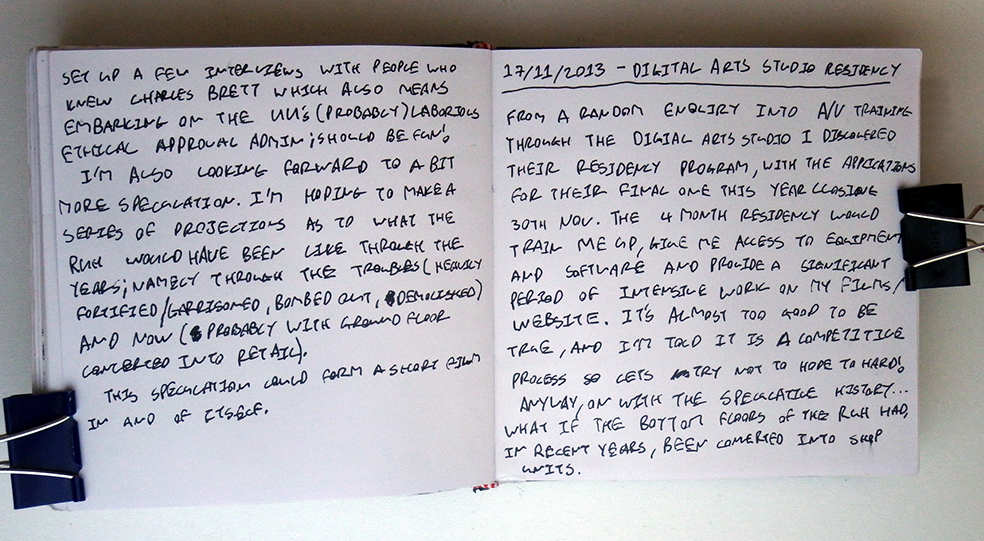 SET UP A FEW INTERVIEWS WITH PEOPLE WHO
KNEW CHARLES BRETT WHICH ALSO MEANS
EMBARKING ON THE UU'S (PROBABLY) LABORIOUS
ETHICAL APPROVAL ADMIN; SHOULD BE FUN!
I'M ALSO LOOKING FORWARD TO A BIT
MORE SPECULATION. I'M HOPING TO MAKE A
SERIES OF PROJECTIONS AS TO WHAT THE
RUH WOULD HAVE BEEN LIKE THROUGH THE
YEARS; NAMELY THROUGH THE TROUBLES (HEAVILY
FORTIFIED/GARRISONED, BOMBED OUT, DEMOLISHED)
AND NOW (PROBABLY WITH GROUND FLOOR
CONVERTED INTO RETAIL).
THIS SPECULATION COULD FORM A SHORT FILM
IN AND OF ITSELF.
17/11/2013 - DIGITAL ARTS STUDIO RESIDENCY
FROM A RANDOM ENQUIRY INTO A/V TRAINING
THROUGH THE DIGIAL ARTS STUDIO I DISCOVERED
THEIR RESIDENCY PROGRAM, WITH THE APPLICATIONS
FOR THEIR FINAL ONE THIS YEAR CLOSING
30TH NOV. THE 4 MONTH RESIDENCY WOULD
TRAIN ME UP, GIVE ME ACCESS TO EQUIPMENT
AND SOFTWARE AND PROVIDE A SIGNIFICANT
PERIOD OF INTENSIVE WORK ON MY FILMS/
WEBSITE. IT'S ALMOST TOO GOOD TO BE
TRUE, AND I'M TOLD IT IS A COMPETITIVE
PROCESS SO LETS TRY NOT TO HOPE TO HARD!
ANYWAY, ON WITH THE SPECULATIVE HISTORY...
WHAT IF THE BOTTOM FLOORS OF THE RUH HAD,
IN RECENT YEARS, BEEN CONVERTED INTO SHOP
UNITS.